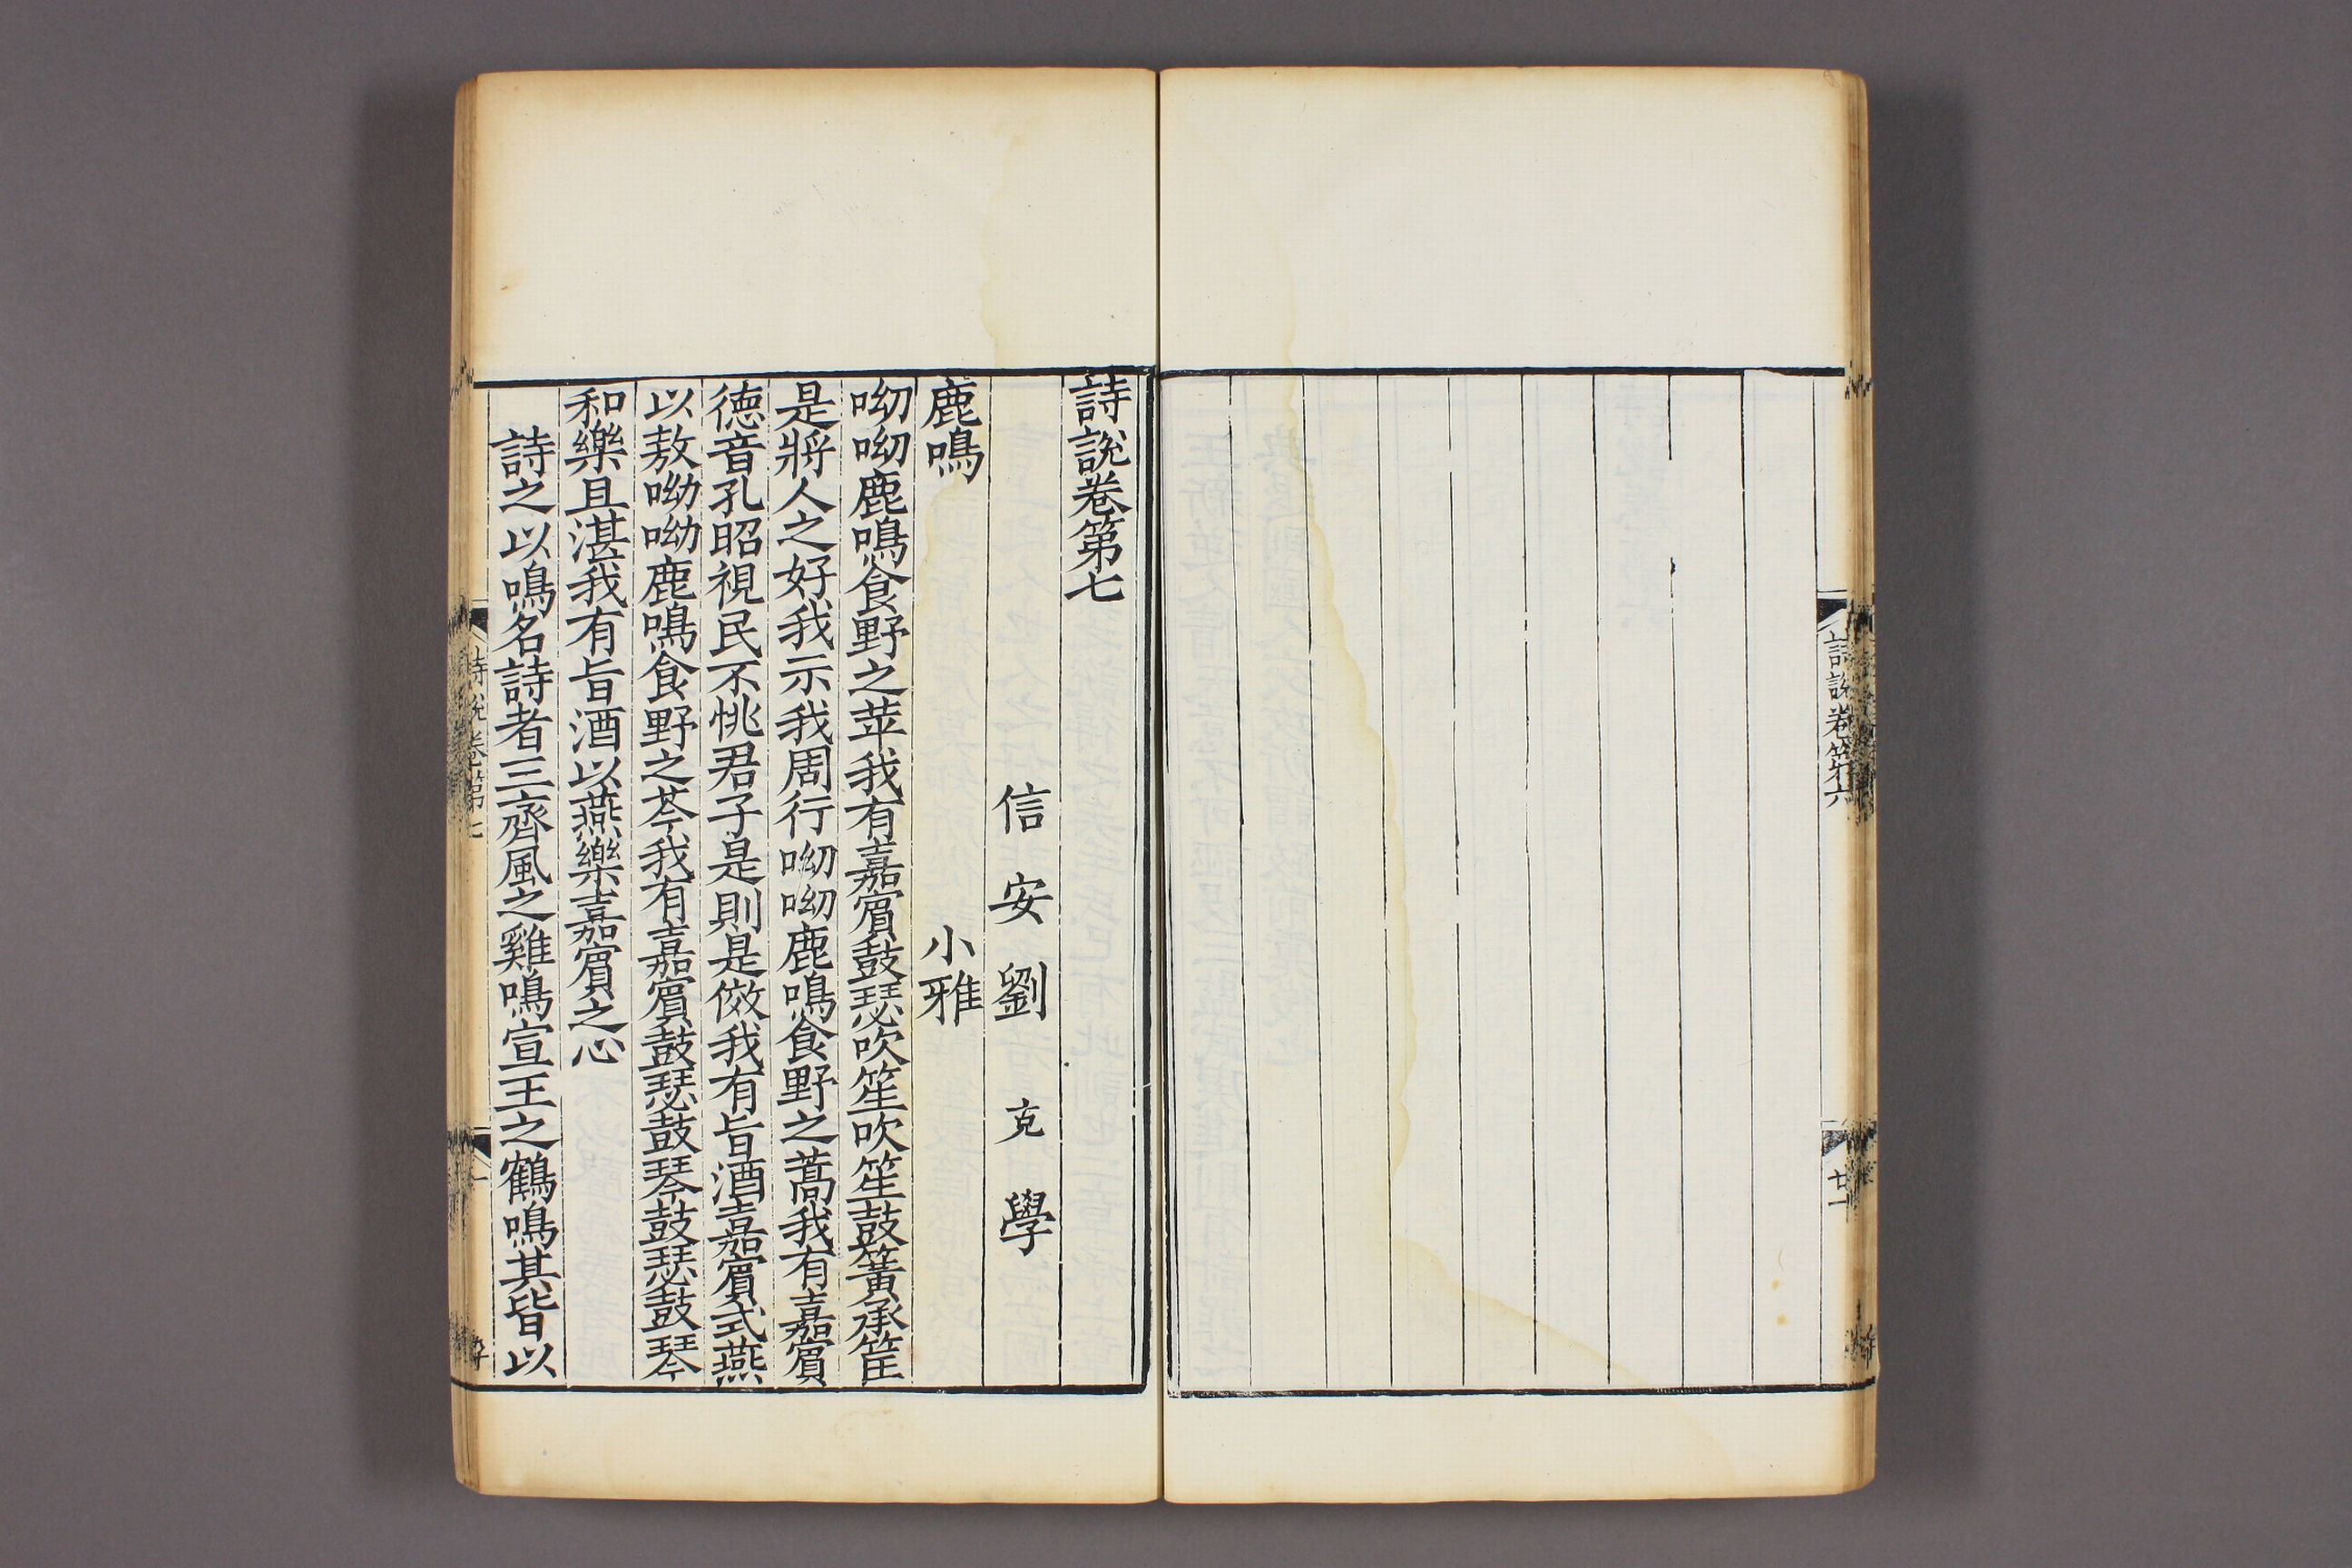 詩說卷第六
廿一
詩說卷第七
信安劉克學
鹿鳴 小雅
呦呦鹿鳴食野之苹我有嘉賔鼓瑟吹笙吹笙鼓簧承筐
是將人之好我示我周行呦呦鹿鳴食野之蒿我有嘉賔
德音孔昭視民不恌君子是則是傚我有旨酒嘉賔式燕
以敖呦呦鹿鳴食野之芩我有嘉賔鼓瑟鼓琴鼓瑟鼓琴
和樂且湛我有旨酒以燕樂嘉賔之心
詩之以鳴名詩者三齊風之雞鳴宣王之鶴鳴其皆以
詩說卷第七
一